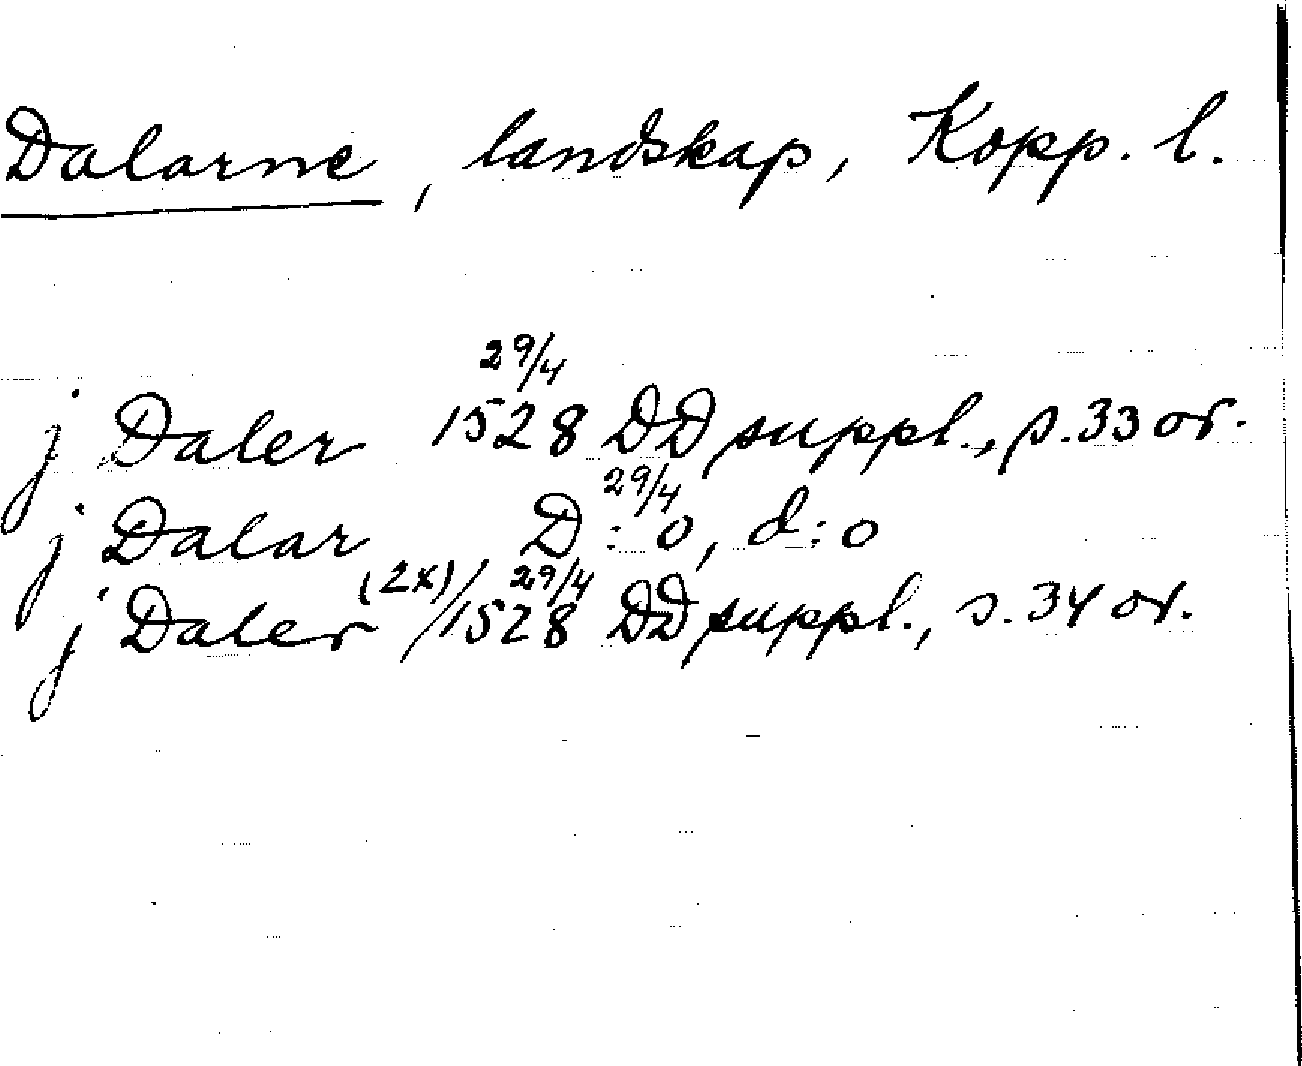 Dalarne, landskap, Kopp. l.
j Daler 29/4 1528 DD suppl., s. 33 or.
j Dalar D:o 29/4, d:o
j Daler (2x) 29/4 1528 DD suppl., s. 34 or.